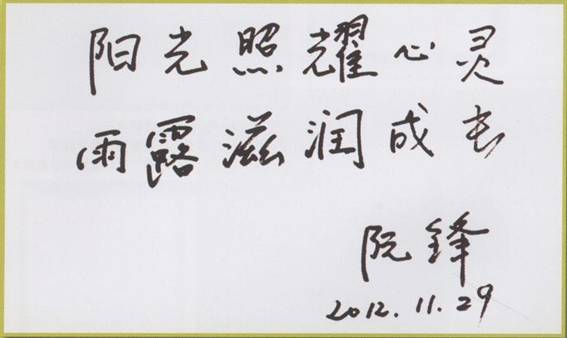 阳光照耀心灵
雨露滋润成长
阮锋
2012.11.29